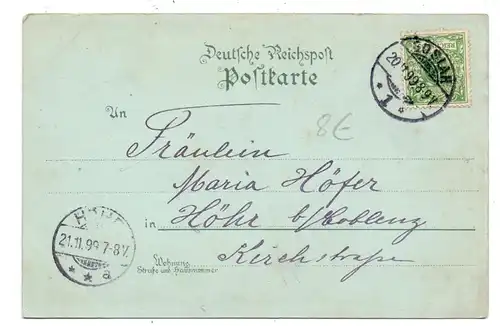 Deutsche Reichspost
Postkarte
GOSLAR
20.11.99 8-9V.
* 1 *
An
8€
Fräulein
Maria Höfer
in Höhr b/Coblenz
Kirchstraße
Wohnung
Straße und Hausnummer
HÖHR
21.11.99 7-8V.
* * a